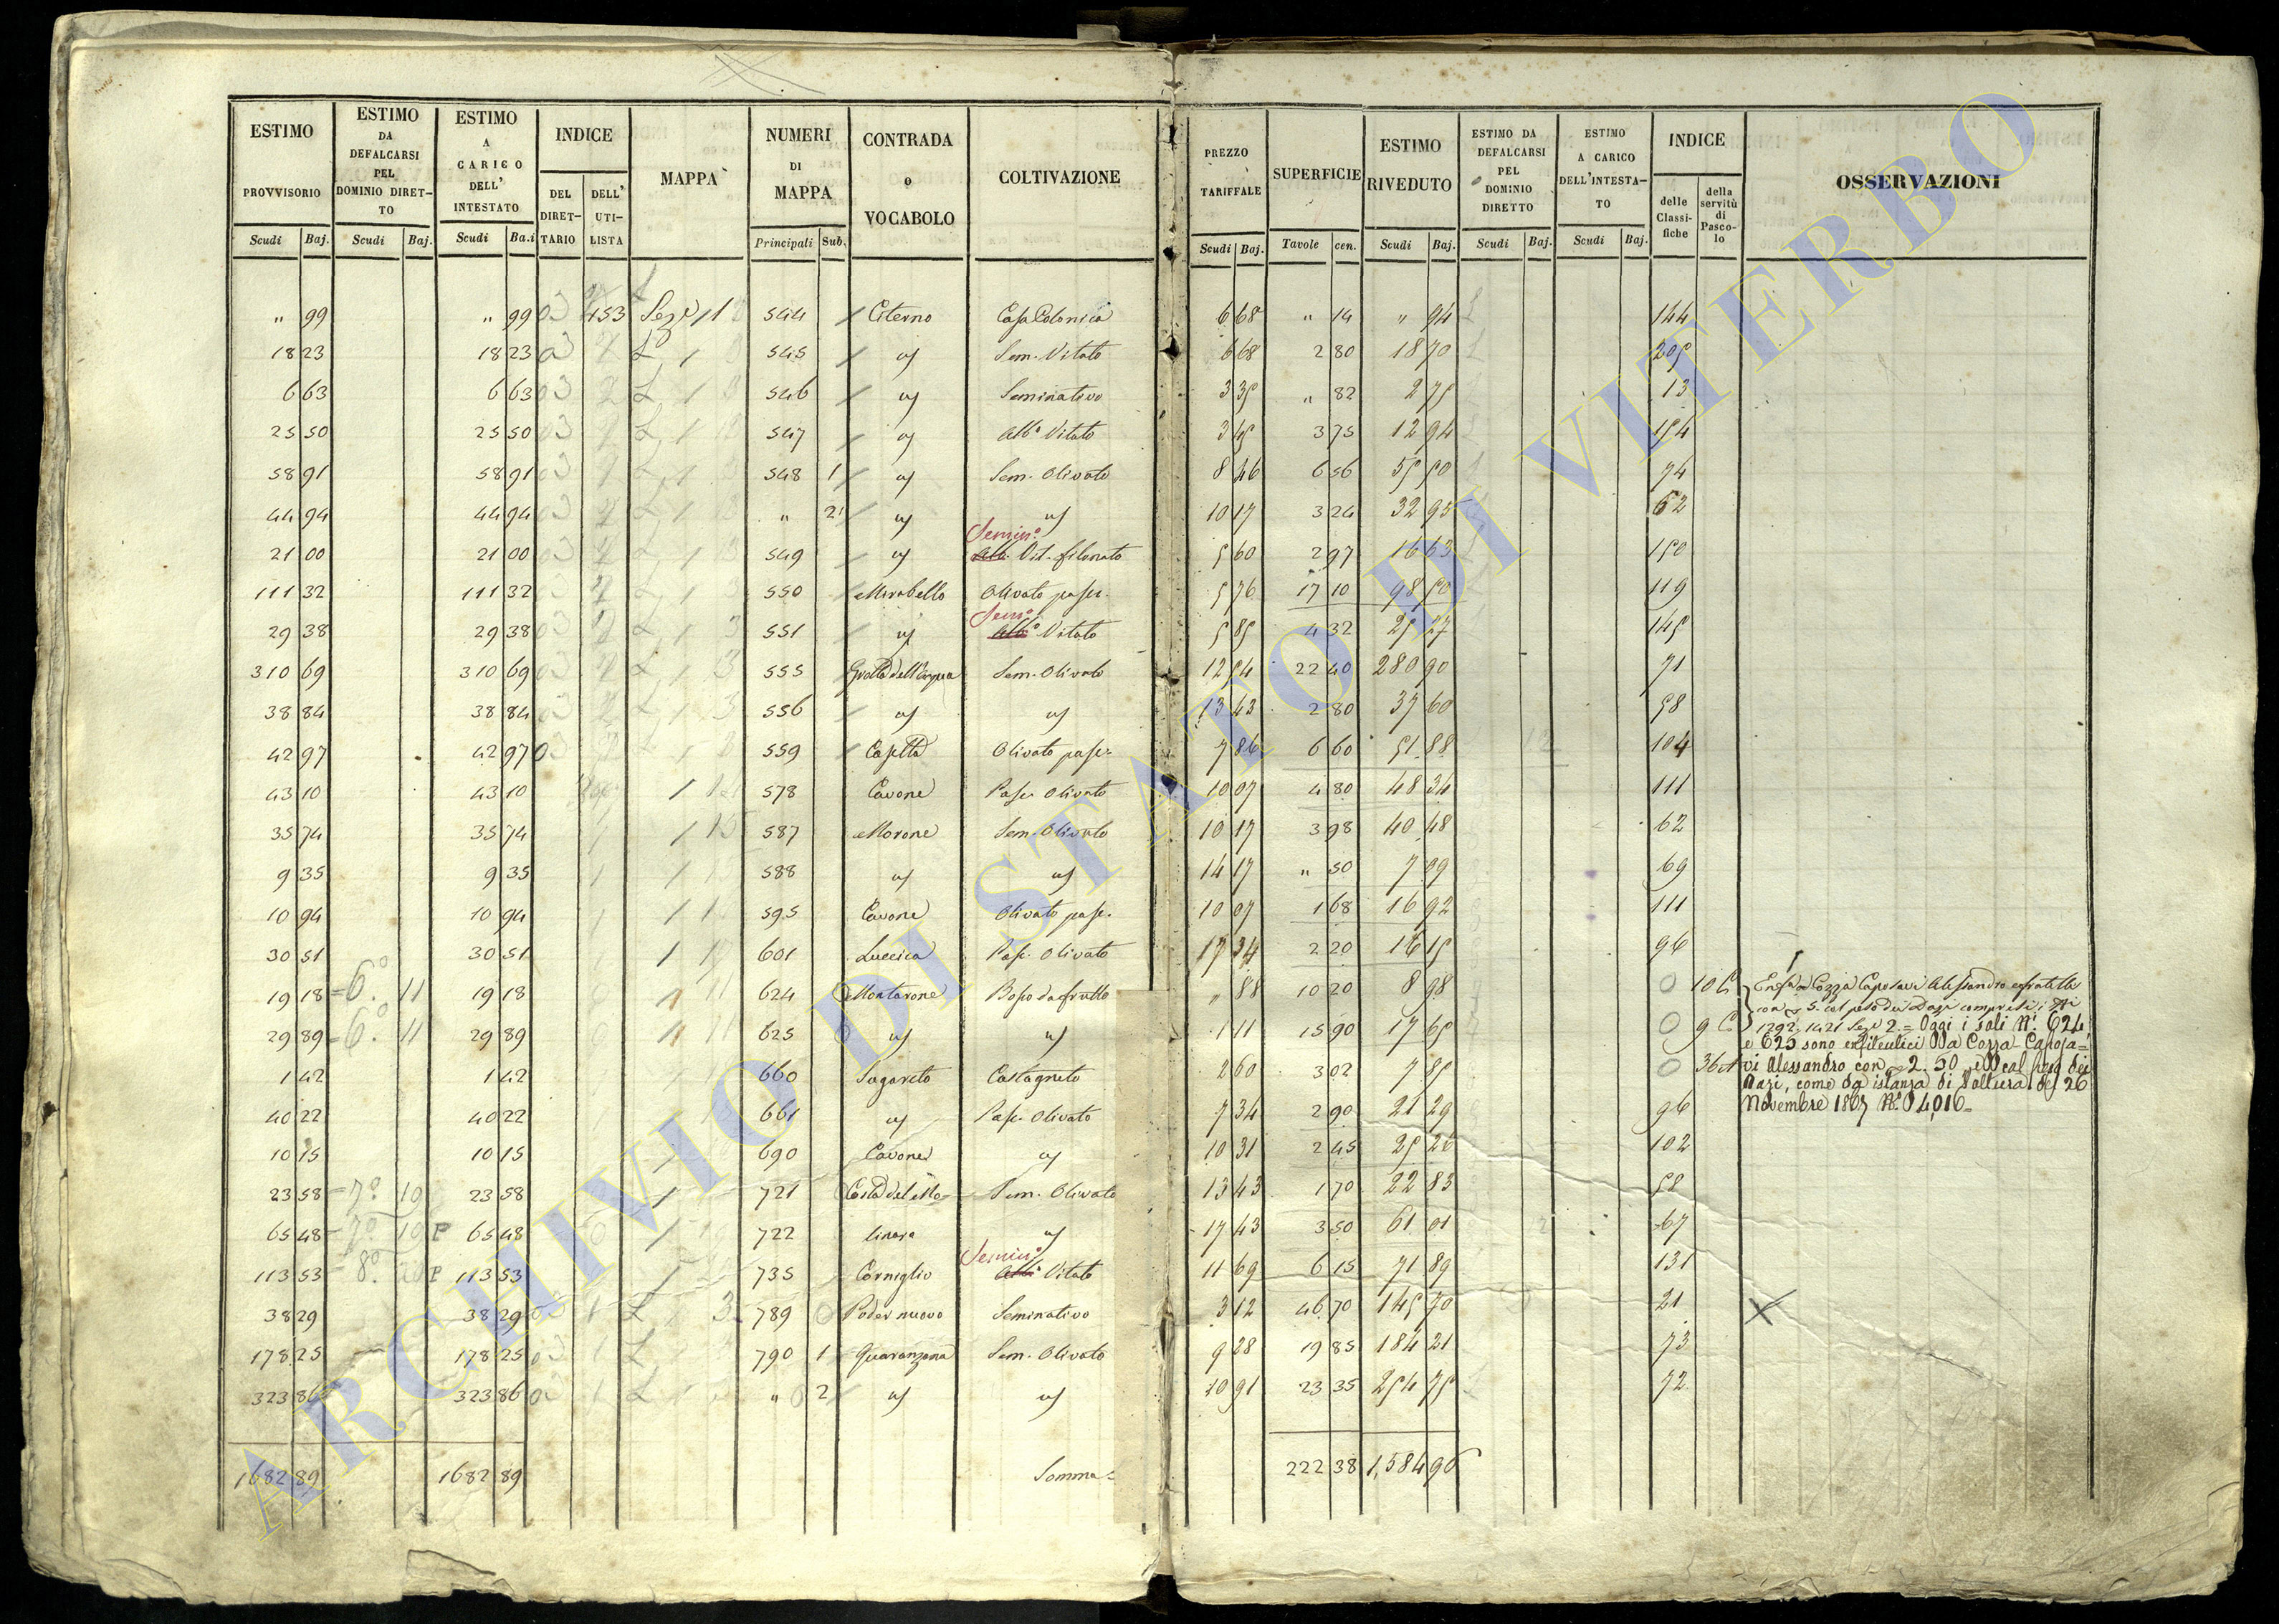 ESTIMO PROVVISORIO | ESTIMO DA DEFALCARSI PEL DOMINIO DIRET-TO | ESTIMO A CARICO DELL' INTESTATO | INDICE | MAPPA | NUMERI DI MAPPA | CONTRADA o VOCABOLO | COLTIVAZIONE | PREZZO TARIFFALE | SUPERFICIE | ESTIMO RIVEDUTO | ESTIMO DA DEFALCARSI PEL DOMINIO DIRETTO | ESTIMO A CARICO DELL'INTESTA-TO | INDICE | OSSERVAZIONI
DEL DIRET-TARIO | DELL' UTI-LISTA | delle Classi-fiche | della servitù di Pasco-lo
Scudi | Baj. | Scudi | Baj. | Scudi | Ba.i | Principali | Sub. | Scudi | Baj. | Tavole | cen. | Scudi | Baj. | Scudi | Baj. | Scudi | Baj.
" 99 | " 99 | 453 | Sez. 1 | 544 | Citerno | Casa Colonica | 6 68 | " 14 | " 94 | 144
18 23 | 18 23 | 545 | " | Sem. Vitato | 6 68 | 2 80 | 18 70 | 205
6 63 | 6 63 | 546 | " | Seminativo | 3 35 | " 82 | 2 75 | 13
25 50 | 25 50 | 547 | " | Alb.o Vitato | 3 45 | 3 75 | 12 94 | 154
58 91 | 58 91 | 548 | 1 | " | Sem. Olivato | 8 46 | 6 56 | 55 50 | 74
44 94 | 44 94 | " | 2 | " | " | 10 17 | 3 24 | 32 95 | 62
21 00 | 21 00 | 549 | " | Semin.o Alb. Vit. filonato | 5 60 | 2 97 | 16 63 | 150
111 32 | 111 32 | 550 | Mirabello | Olivato pasc. | 5 76 | 17 10 | 98 50 | 119
29 38 | 29 38 | 551 | " | Sem.o Alb.o Vitato | 5 85 | 4 32 | 25 27 | 145
310 69 | 310 69 | 555 | Grotta dell'Acqua | Sem. Olivato | 12 54 | 22 40 | 280 90 | 71
38 84 | 38 84 | 556 | " | " | 13 43 | 2 80 | 37 60 | 58
42 97 | 42 97 | 559 | Casetta | Olivato pasc. | 7 86 | 6 60 | 51 88 | 104
43 10 | 43 10 | 578 | Cavone | Pasc. Olivato | 10 07 | 4 80 | 48 34 | 111
35 74 | 35 74 | 587 | Morone | Sem. Olivato | 10 17 | 3 98 | 40 48 | 62
9 35 | 9 35 | 588 | " | " | 14 17 | " 50 | 7 09 | 69
10 94 | 10 94 | 595 | Cavone | Olivato pasc. | 10 07 | 1 68 | 16 92 | 111
30 51 | 30 51 | 601 | Luccica | Pasc. Olivato | 2 20 | 16 15 | 96
19 18 | 6.o 11 | 19 18 | 624 | Montarone | Bosco da frutto | " 88 | 10 20 | 8 98 | 10 C
29 89 | 6.o 11 | 29 89 | 625 | " | " | 1 11 | 15 90 | 17 65 | 9 C
1 42 | 1 42 | 660 | Sugareto | Castagneto | 2 60 | 3 02 | 7 85 | 36 A
40 22 | 40 22 | 661 | " | Pasc. Olivato | 7 34 | 2 90 | 21 29 | 96
10 15 | 10 15 | 690 | Cavone | " | 10 31 | 2 45 | 25 26 | 102
23 58 | 7.o 10 | 23 58 | 721 | Costa del Mo- | Sem. Olivato | 13 43 | 1 70 | 22 83 | 58
65 48 | 7.o 10 P | 65 48 | 722 | linara | " | 17 43 | 3 50 | 61 01 | 67
113 53 | 8.o P | 113 53 | 735 | Corniglio | Semin.o Alb.o Vitato | 11 69 | 6 15 | 71 89 | 131
38 29 | 38 29 | 789 | Poder nuovo | Seminativo | 3 12 | 46 70 | 145 70 | 21
178 25 | 178 25 | 790 | 1 | Quaranzana | Sem. Olivato | 9 28 | 19 85 | 184 21 | 73
323 86 | 323 86 | " | 2 | " | " | 10 91 | 23 35 | 254 75 | 72
1682 89 | 1682 89 | Somma | 222 38 | 1,584 96
Cozza Caposavi Alessandro e fratelli
con 5. col peso dei Dazi compresi i Ni
1292, 1421 Sez. 2.= Oggi i soli Ni. 624
e 625 sono enfiteutici Da Cozza-Caposa=
vi Alessandro con 2. 50 e col peso dei
Dazi, come da istanza di Voltura del 26
Novembre 1867 No. 4016=
ARCHIVIO DI STATO DI VITERBO